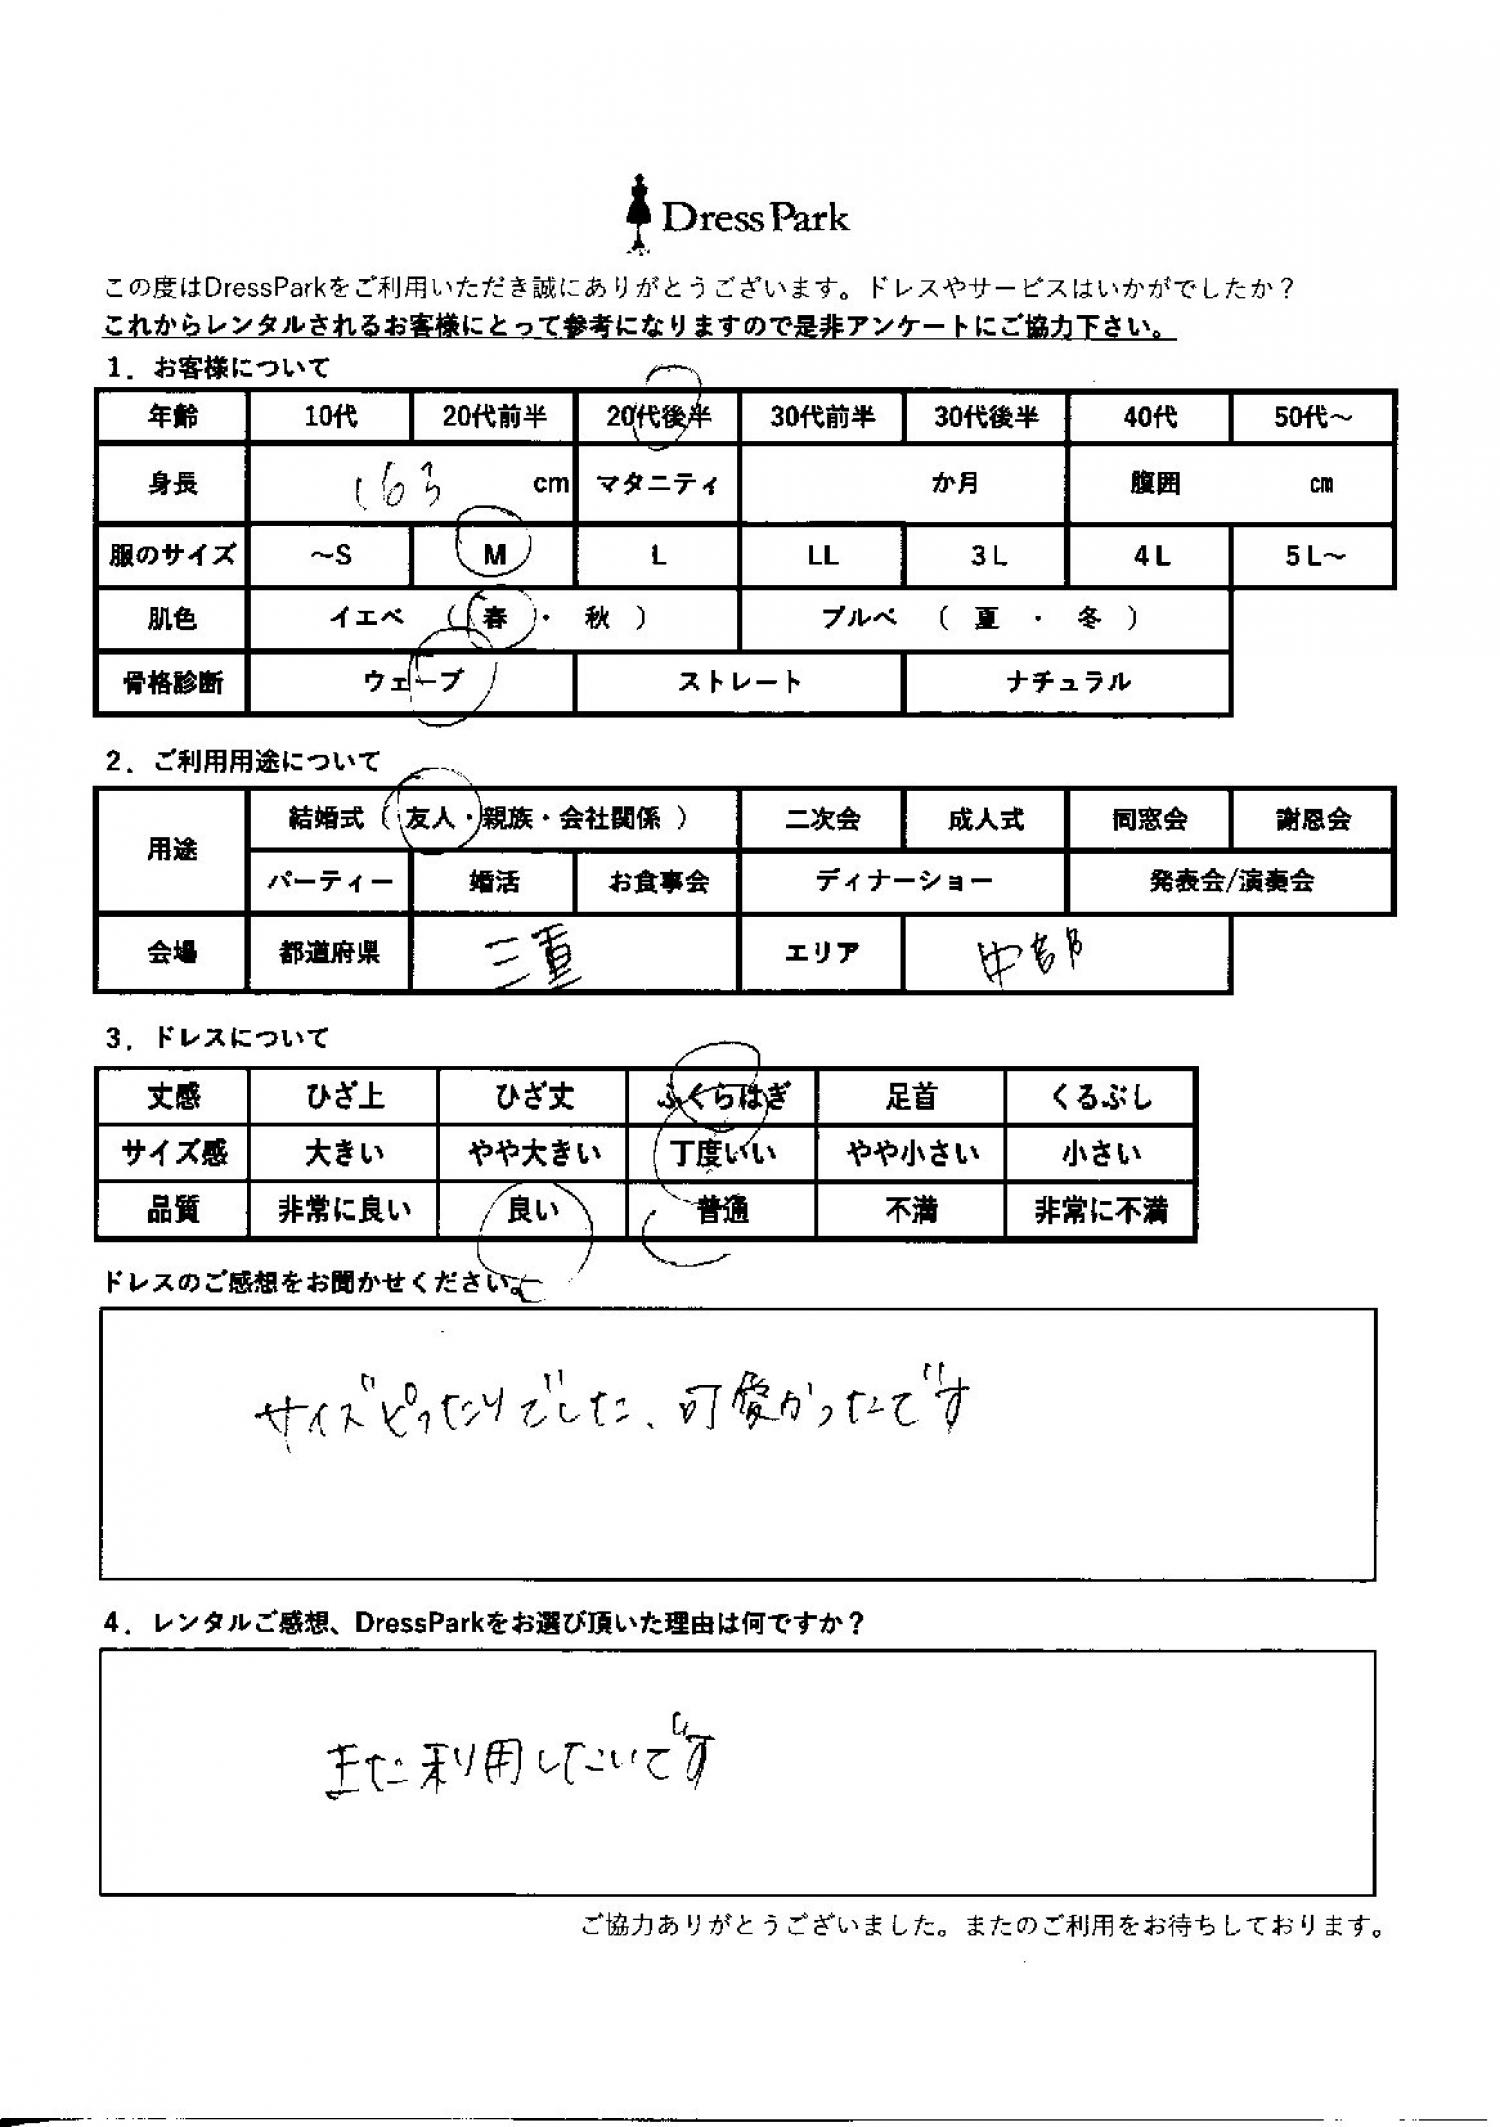 Dress Park
この度はDressParkをご利用いただき誠にありがとうございます。ドレスやサービスはいかがでしたか？
これからレンタルされるお客様にとって参考になりますので是非アンケートにご協力下さい。
1．お客様について
年齢 10代 20代前半 20代後半 30代前半 30代後半 40代 50代～
身長 163 cm マタニティ か月 腹囲 cm
服のサイズ ～S M L LL 3L 4L 5L～
肌色 イエベ （ 春 ・ 秋 ） ブルベ （ 夏 ・ 冬 ）
骨格診断 ウェーブ ストレート ナチュラル
2．ご利用用途について
用途 結婚式（ 友人・親族・会社関係 ） 二次会 成人式 同窓会 謝恩会
パーティー 婚活 お食事会 ディナーショー 発表会/演奏会
会場 都道府県 三重 エリア 中部
3．ドレスについて
丈感 ひざ上 ひざ丈 ふくらはぎ 足首 くるぶし
サイズ感 大きい やや大きい 丁度いい やや小さい 小さい
品質 非常に良い 良い 普通 不満 非常に不満
ドレスのご感想をお聞かせください。
サイズピッタリでした、可愛かったです
4．レンタルご感想、DressParkをお選び頂いた理由は何ですか？
また利用したいです
ご協力ありがとうございました。またのご利用をお待ちしております。